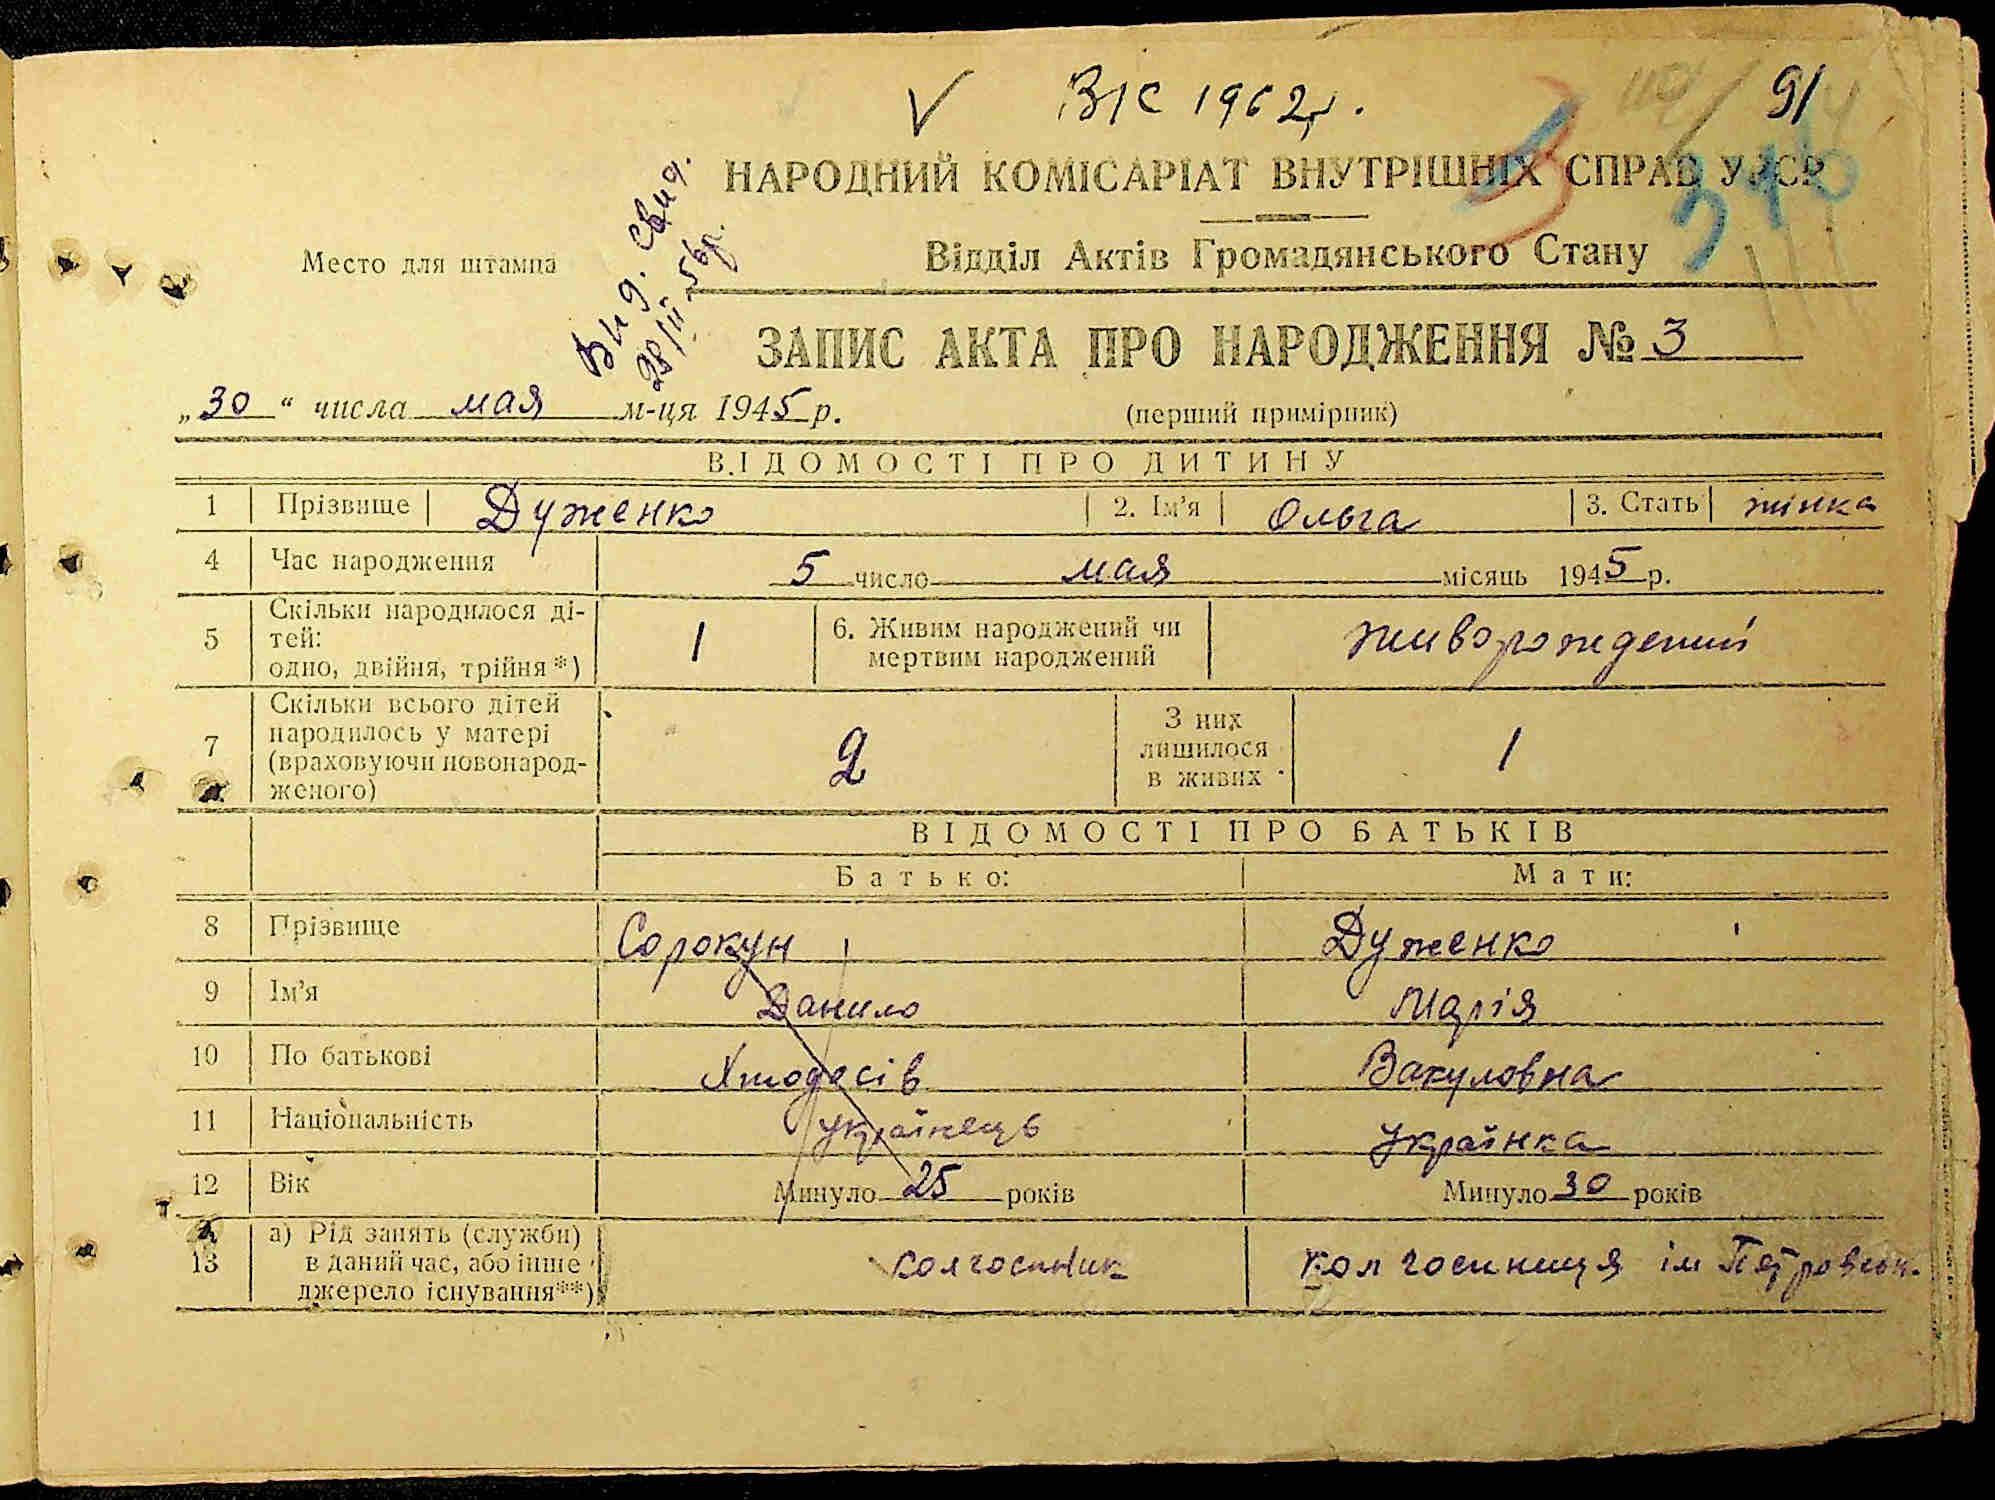 V В/С 1962 г. 91
346
НАРОДНИЙ КОМІСАРІАТ ВНУТРІШНІХ СПРАВ УРСР
Место для штампа
Вид. свид.
28/II-56р.
Відділ Актів Громадянського Стану
ЗАПИС АКТА ПРО НАРОДЖЕННЯ № 3
„30" числа мая м-ця 1945 р. (перший примірник)
ВІДОМОСТІ ПРО ДИТИНУ
1 Прізвище Дуженко 2. Ім'я Ольга 3. Стать жінка
4 Час народження 5 число мая місяць 1945 р.
5 Скільки народилося ді-
тей:
одно, двійня, трійня*) 1 6. Живим народжений чи
мертвим народжений живорождений
7 Скільки всього дітей
народилось у матері
(враховуючи новонарод-
женого) 2 З них
лишилося
в живих 1
ВІДОМОСТІ ПРО БАТЬКІВ
Батько: Мати:
8 Прізвище Сорокун Дуженко
9 Ім'я Данило Марія
10 По батькові Вакуловна
11 Національність українець українка
12 Вік Минуло 25 років Минуло 30 років
13 а) Рід занять (служби)
в даний час, або інше
джерело існування**) колгоспник колгоспниця ім Петровськ.